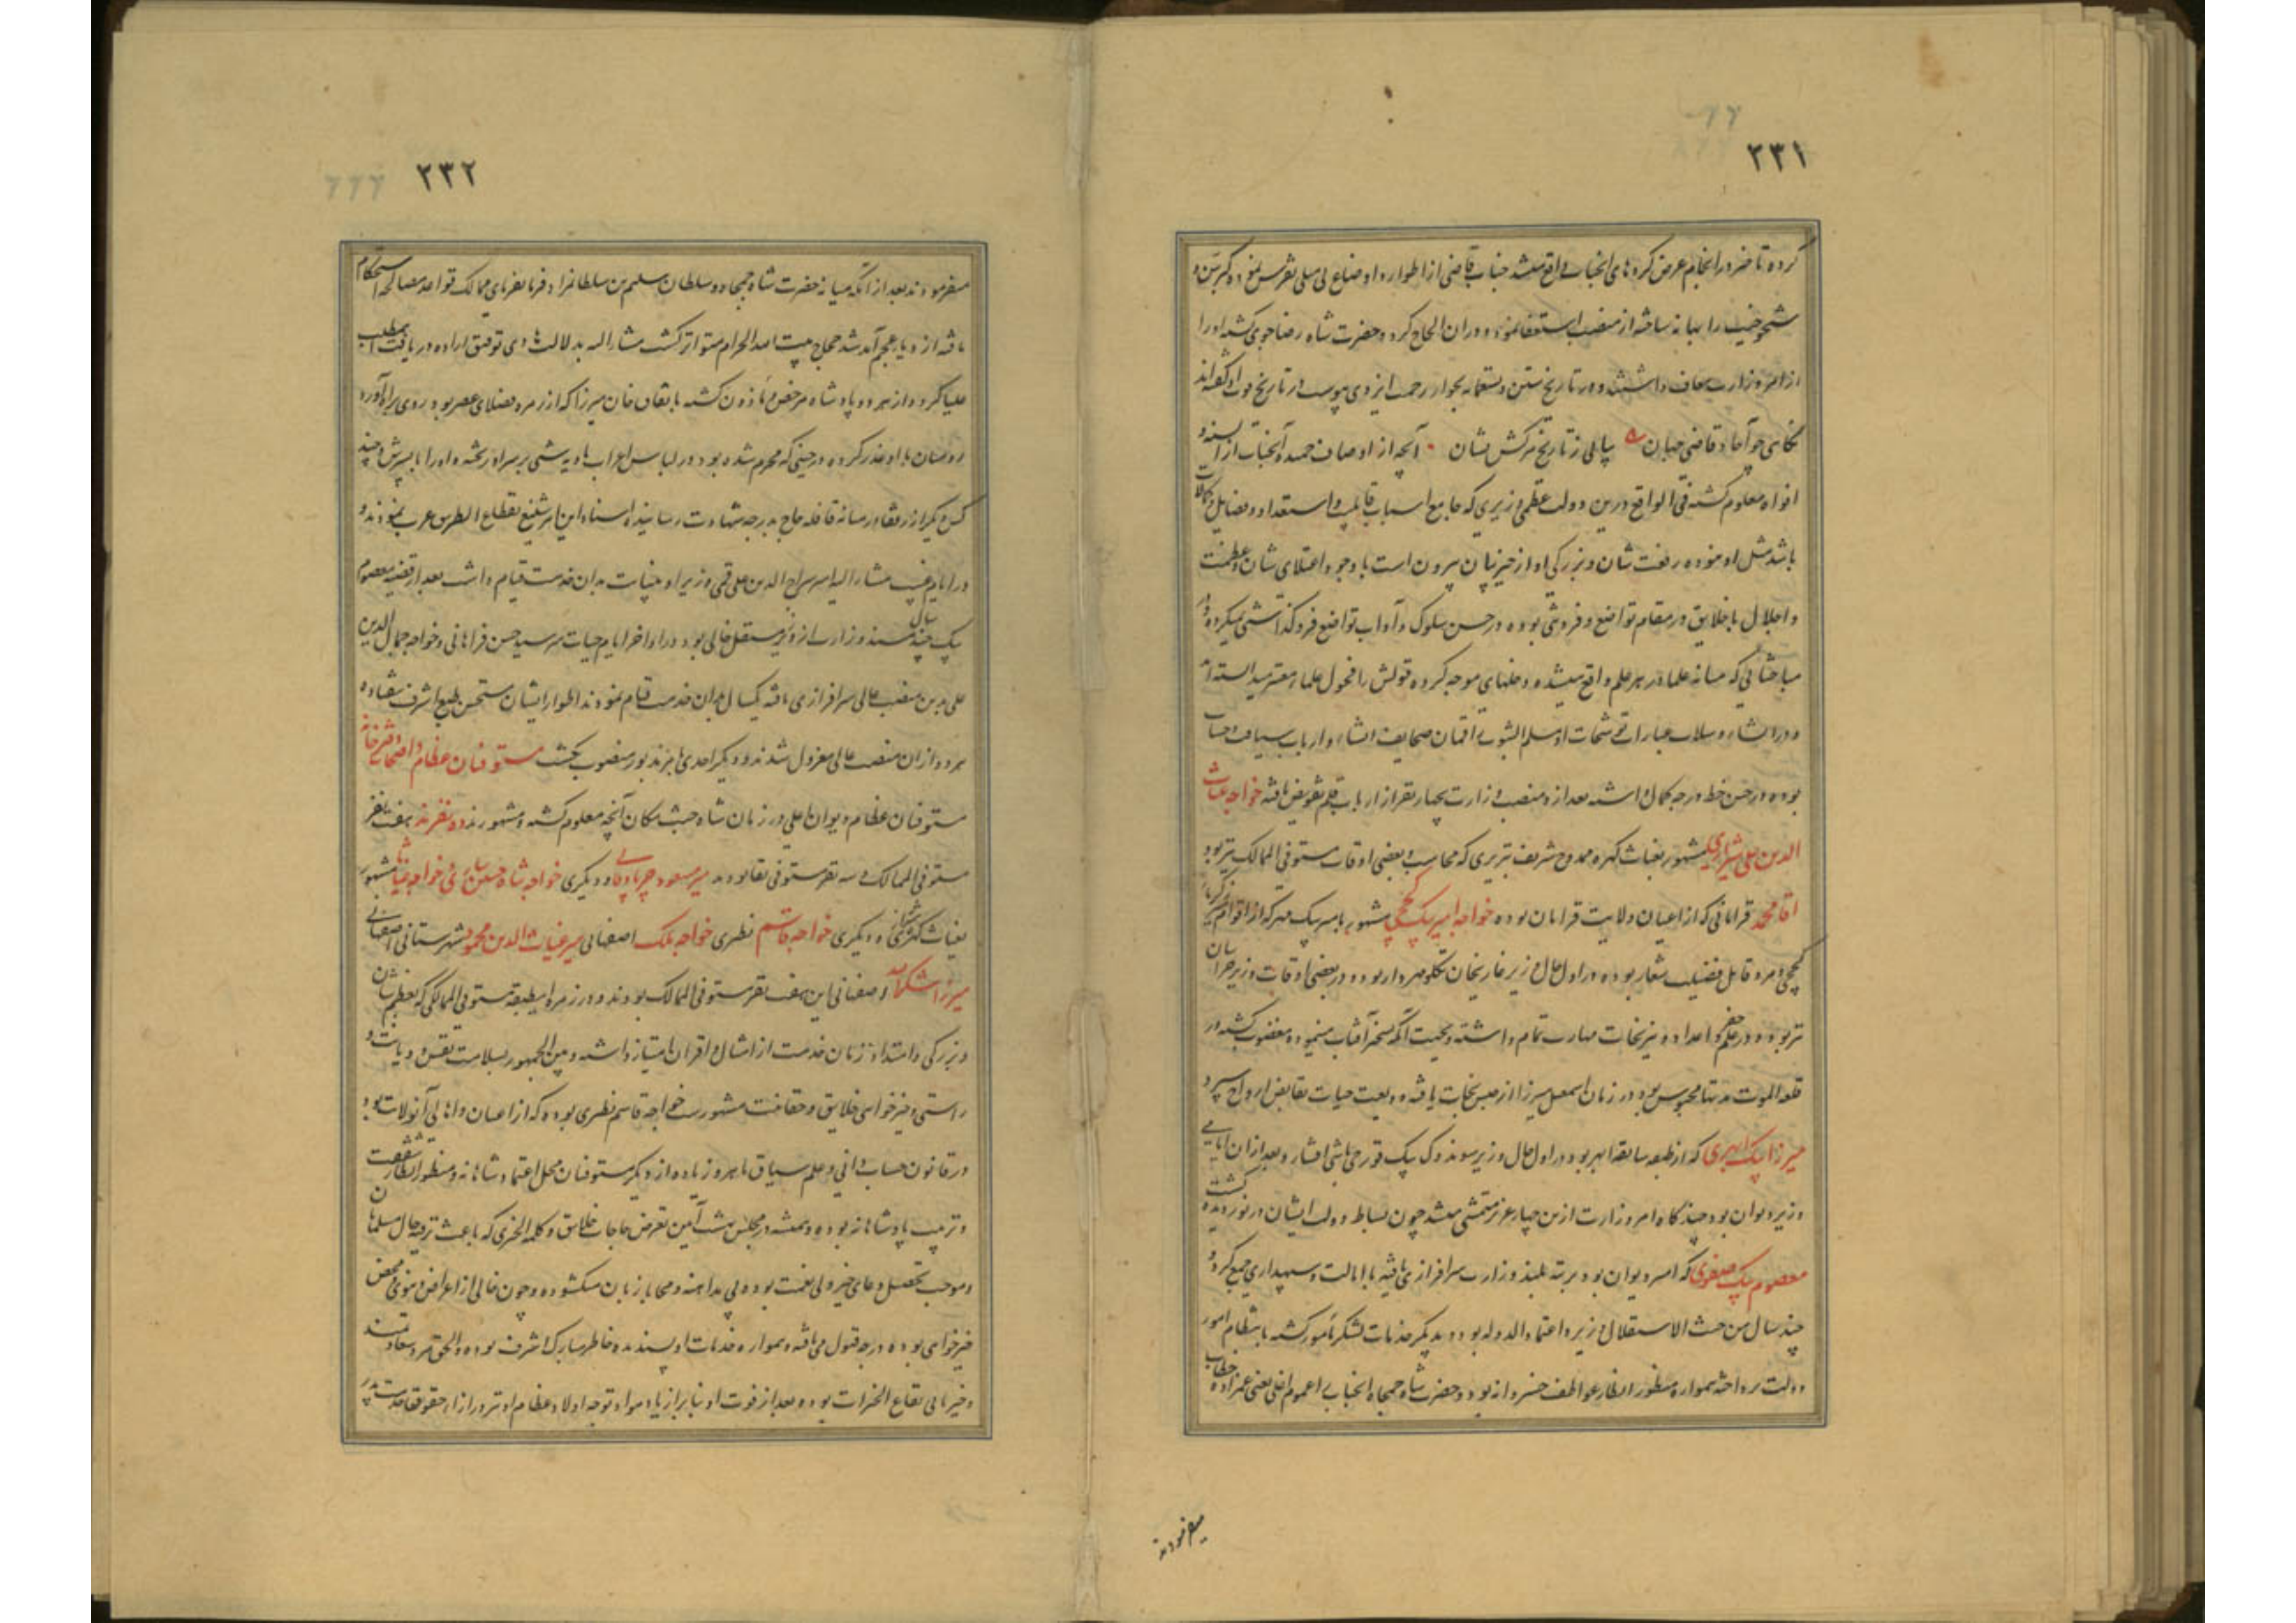 ۲۳۱
کرده تا خود در انجام عرض کرده‌های انجناب واقع میشد جناب قاضی از اطوار و اوضاع
را بهانه ساخته از منصب استعفا نموده در ان الحاح کرد و حضرت شاه رضاجوی گشته او را
از امر وزارت معاف داشتند و در تاریخ بجوار رحمت ایزدی پیوست در تاریخ فوت او گفته‌اند
قاضی جهان پیاپی ز تاریخ مرگش نشان آنچه از اوصاف حمیده آنجناب از السنه و
افواه معلوم گشته فی الواقع درین دولت عظمی وزیری که جامع اسباب قابلیت و استعداد و فضایل و کمالات
باشد مثل او نبوده رفعت شان و بزرگی او از حیز بیان بیرون است با وجود اعتلای شان و عظمت
و اجلال با خلایق در مقام تواضع و فروتنی بوده در حسن سلوک و آداب تواضع فروگذاشتی نمیکرد و در
مباحثاتی که میانه علما در هر علم واقع میشده دخلهای موجه کرده قولش را فحول علما معتبر میدانسته‌اند
و در انشاء و سلاست عبارات صحایف انشاء و ارباب سیاقت و حساب
بوده در حسن خط درجه کمال داشته بعد ازو منصب وزارت بچهار نفر از ارباب قلم تفویض یافته خواجه غیاث
الدین علی شیرازی مشهور بغیاث کهره ممدوح شریف تبریزی که محاسب و بعضی اوقات مستوفی الممالک نیز بود
آقا محمد فراهانی که از اعیان ولایت فراهان بوده خواجه امیر بیک کججی مشهور بامیر بیک مهر که از اقوام
کججی و مرد قابل فضیلت شعار بوده در اول حال وزیر غازیخان تکلو مهردار بود و در بعضی اوقات وزیر خراسان
نیز بود و در علم جفر و اعداد و نیرنجات مهارت تمام داشته و بجهت آنکه تسخیر آفتاب مینموده مغضوب گشته در
قلعه الموت مدتها محبوس بود در زمان اسمعیل میرزا از حبس نجات یافته ودیعت حیات بقابض ارواح سپرد
میرزا بیک ابهری که از طبقه سابقه ابهر بود در اول حال وزیر سوندوک بیک قورچی باشی افشار و بعد از ان
وزیر دیوان بود چندگاه امر وزارت ازین چهار عزیز متمشی میشد چون بساط دولت ایشان در نوردیده گشت
معصوم بیک صفوی که امیر دیوان بود برتبه بلند وزارت سرافرازی یافته با ایالت و سپهداری جمع کرد و
چند سال من حیث الاستقلال وزیر و اعتماد الدوله بود و بدیگر خدمات لشکر مامور گشته بانتظام امور
دولت پرداخته همواره منظور انظار عواطف خسروانه بود و حضرت شاه جمجاه انجناب را عمواوغلی یعنی عمزاده خطاب
میفرمودند
۲۳۲
میفرمودند بعد از آنکه میانه حضرت شاه جمجاه و سلطان سلیم بن سلطان مراد فرمانفرمای ممالک قواعد مصالحه استحکام
یافته از دیار عجم آمد شد حجاج بیت الله الحرام متواتر گشت مشارالیه بدلالت هادی توفیق اراده دریافت آن مطلب
علیا کرد و از هر دو پادشاه مرخص و ماذون گشته باتفاق خان میرزا که از زمره فضلای عصر بود روی براه آورد
رومیان با او غدر کرده در حینی که محرم شده بود در لباس اعراب بادیه شبی بر سر او ریخته او را با پسرش و چند
کس دیگر از رفقا در میانه قافله حاج بدرجه شهادت رسانیدند اسناد این امر شنیع بقطاع الطریق عرب نمودند و
در ایام غیبت مشارالیه میر سراج الدین علی قمی وزیر او بنیابت بدان خدمت قیام داشت بعد از قضیه معصوم
بیک چند سال مسند وزارت از وزیر مستقل خالی بود در اواخر ایام حیات میر سید حسن فراهانی و خواجه جمال الدین
علی بدین منصب عالی سرافرازی یافته یکسال بدان خدمت قیام نمودند اطوار ایشان مستحسن طبع اشرف نیفتاده
هر دو از ان منصب عالی معزول شدند و دیگر احدی بوزارت منصوب نگشت مستوفیان عظام و اصحاب دفترخانه
مستوفیان عظام دیوان اعلی در زمان شاه جنت مکان آنچه معلوم گشته و مشهورند ده نفرند هفت نفر
مستوفی الممالک و سه نفر مستوفی بقایا بودند میر مسعود و دیگری خواجه شاه حسین خواجه غیاث مشهور
بغیاث کهره و دیگری خواجه قاسم نطنزی خواجه ملک اصفهانی میر غیاث الدین محمود شهرستانی اصفهانی
میرزا شکرالله اصفهانی این هفت نفر مستوفی الممالک بودند و در زمره این طبقه مستوفی الممالکی که بعظم شان
و بزرگی و امتداد زمان خدمت از امثال و اقران امتیاز داشته و بین الجمهور بسلامت نفس و دیانت و
راستی و خیرخواهی خلایق و حقانیت مشهور است خواجه قاسم نطنزی بوده که از اعیان و اهالی آنولایت بود
در قانون حساب دانی و علم سیاق ماهر و زیاده از دیگر مستوفیان محل اعتماد شاهانه و منظور انظار شفقت
و تربیت پادشاهانه بوده و همیشه در مجلس بهشت آیین بعرض حاجات خلایق و کلمة الخیری که باعث ترفیه حال مسلمانان
و موجب تحصیل دعای خیر ولی نعمت بوده بی مداهنه و محابا زبان میگشوده و چون خالی از اعراض دنیوی و محض
خیرخواهی بوده درجه قبول می‌یافته و همواره خدمات او پسندیده خاطر مبارک اشرف بوده و الحق مرد سعادتمند
و خیر و بانی بقاع الخیرات بوده بعد از فوت او بنابر ازیاد مواد توجه اولاد عظام او نیز در ازاء حقوق خدمت پدر